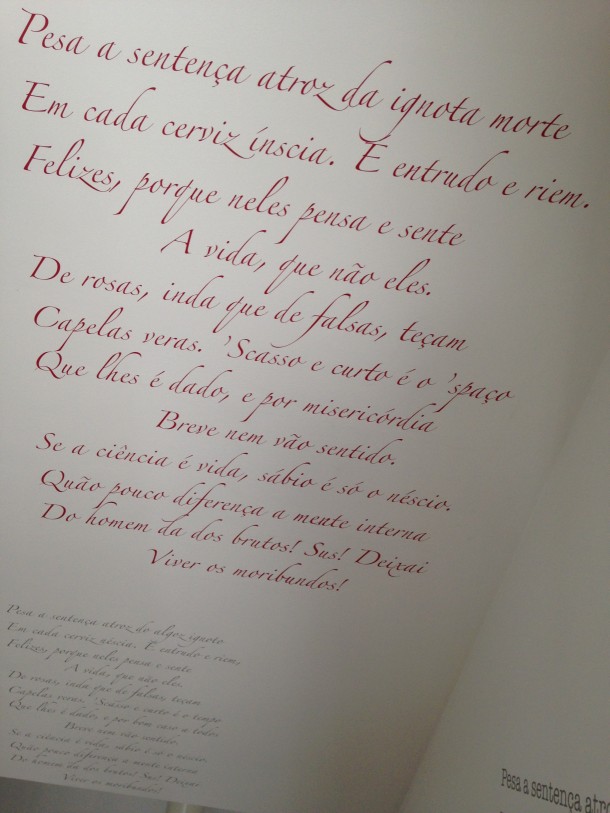 Pesa a sentença atroz da ignota morte
Em cada cerviz ínscia. E entrudo e riem.
Felizes, porque neles pensa e sente
A vida, que não eles.
De rosas, inda que de falsas, teçam
Capelas veras. 'Scasso e curto é o 'spaço
Que lhes é dado, e por misericórdia
Breve nem vão sentido.
Se a ciência é vida, sábio é só o néscio.
Quão pouco diferença a mente interna
Do homem da dos brutos! Sus! Deixai
Viver os moribundos!
Pesa a sentença atroz do algoz ignoto
Em cada cerviz néscia. É entrudo e riem,
Felizes, porque neles pensa e sente
A vida, que não eles.
De rosas, inda que de falsas, teçam
Capelas veras. 'Scasso e curto é o tempo
Que lhes é dado, e por bom caso a todos
Breve nem vão sentido.
Se a ciência é vida, sábio é só o néscio.
Quão pouco diferença a mente interna
Do homem da dos brutos! Sus! Deixai
Viver os moribundos!
Pesa a sentença atro